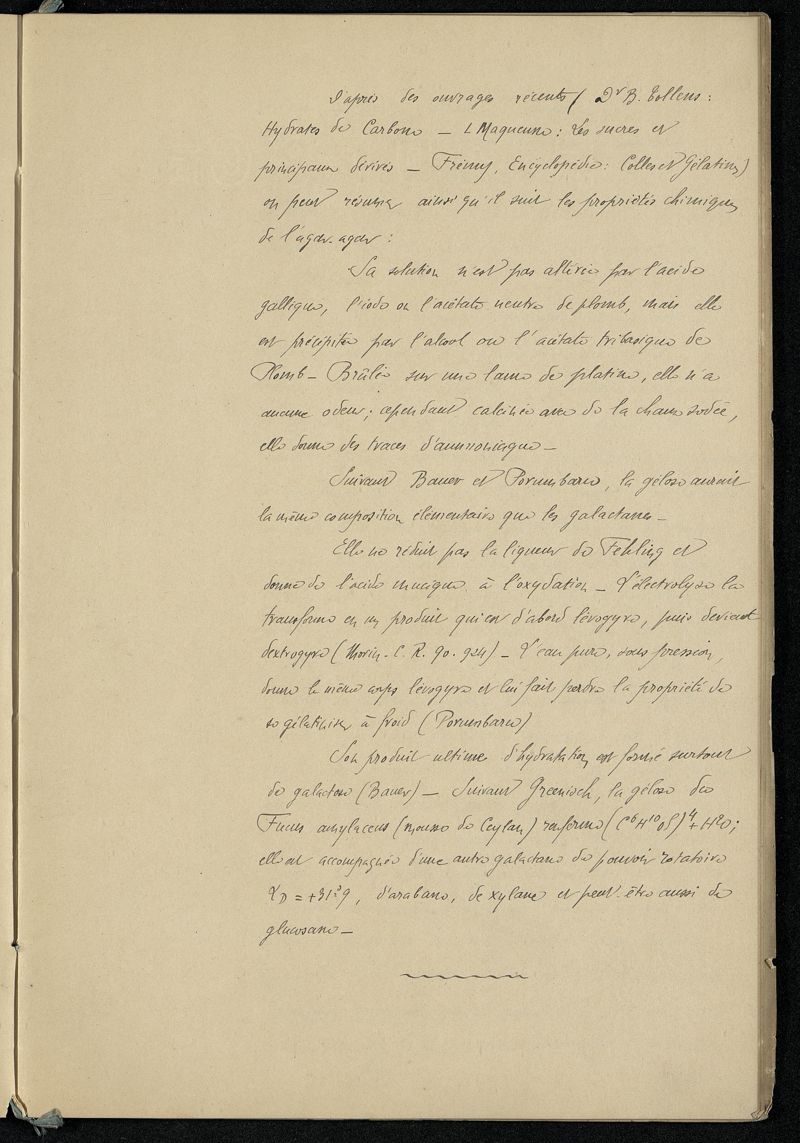 D'après des ouvrages récents ( Dr B. Tollens :
Hydrates de Carbone — L Maquenne : Les sucres et
principaux dérivés — Frémy, Encyclopédie : Colles et Gélatines)
on peut résumer ainsi qu'il suit les propriétés chimiques
de l'agar-agar :
Sa solution n'est pas altérée par l'acide
gallique, l'iode ou l'acétate neutre de plomb, mais elle
est précipitée par l'alcool ou l'acétate tribasique de
Plomb — Brûlée sur une lame de platine, elle n'a
aucune odeur ; cependant calcinée avec de la chaux sodée,
elle donne des traces d'ammoniaque —
Suivant Bauer et Porumbaru, la gélose aurait
la même composition élémentaire que les galactanes —
Elle ne réduit pas la liqueur de Fehling et
donne de l'acide mucique à l'oxydation — L'électrolyse la
transforme en un produit qui est d'abord lévogyre, puis devient
dextrogyre ( Morin. C. R. 90. 924) — L'eau pure, sous pression,
donne le même corps lévogyre et lui fait perdre la propriété de
se gélatiniser à froid (Porumbaru)
Son produit ultime d'hydratation est formé surtout
de galactose (Bauer) — Suivant Greenisch, la gélose du
Fucus amylaceus (mousse de Ceylan) renferme (C⁶H¹⁰O⁵)⁴ + H²O ;
elle est accompagnée d'une autre galactane de pouvoir rotatoire
αD = +31°9, d'arabane, de xylane et peut-être aussi de
glucosane —